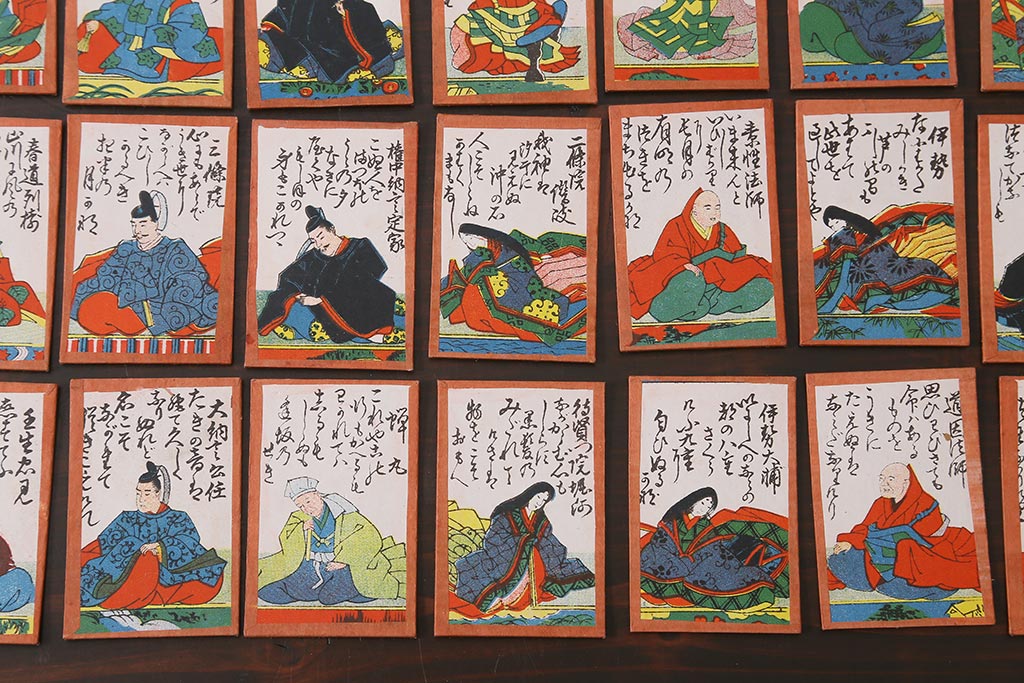 春道列樹
山川に風の
三條院
心にもあらで
うき世に
ながらへば
こひし
かるべき
夜半の
月かな
権中納言定家
こぬ人を
まつほの
うらの夕
なぎに
やくや
もしほの
身もこがれつゝ
二條院
讃岐
我袖は
汐干に
みえぬ
沖の石
人こそしらね
かわく
まもなし
素性法師
いま来んと
いひしばかりに
長月の
有明の
月を
まち出るかな
伊勢
なにはがた
みじかき
芦の
ふしの間も
あはで
此世を
過してよとや
壬生忠見
恋すてふ
大納言公任
たきの音は
絶て久しく
なりぬれど
名こそ
ながれて
猶きこえけれ
蝉丸
これや此
行もかへるも
わかれては
しるも
しらぬも
逢坂の
せき
待賢門院堀河
ながからむ
心もしらず
黒髪の
みだれて
けさは
物をこそ
おもへ
伊勢大輔
いにしへの
ならの
都の八重
ざくら
けふ九重に
匂ひぬる
かな
道因法師
思ひわびさても
命はある
ものを
うきに
たえぬは
なみだなりけり